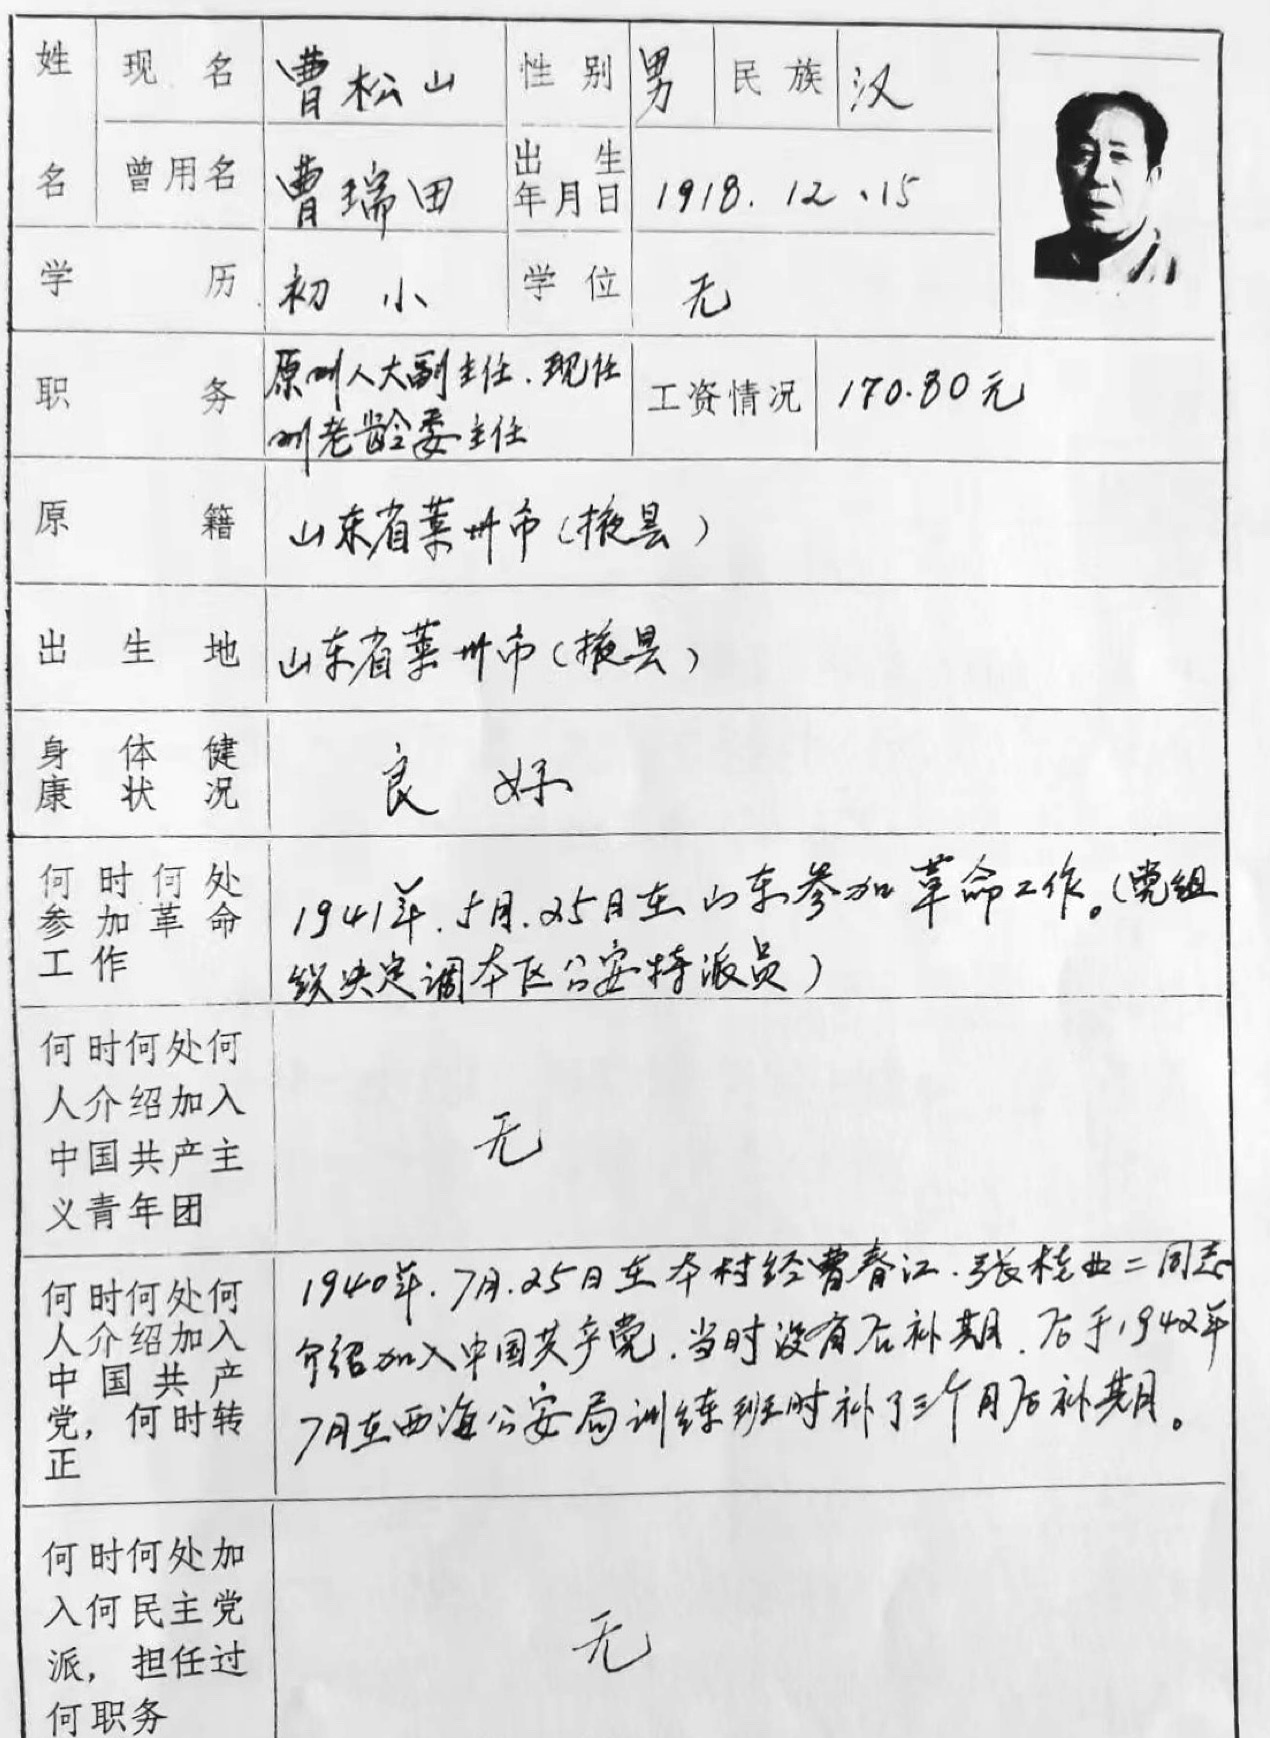 姓名 现名 曹松山 性别 男 民族 汉
曾用名 曹瑞田 出生年月日 1918.12、15
学历 初小 学位 无
职务 原州人大副主任.现任
州老龄委主任
工资情况 170.80元
原籍 山东省莱州市(掖县)
出生地 山东省莱州市(掖县)
身体健
康状况
良好
何时何处
参加革命
工作
1941年.5月.25日在山东参加革命工作。(党组
织决定调本区公安特派员)
何时何处何
人介绍加入
中国共产主
义青年团
无
何时何处何
人介绍加入
中国共产
党,何时转
正
1940年.7月.25日在本村经曹春江.张桂业二同志
介绍加入中国共产党.当时没有后补期.后于1942年
7月在西海公安局训练班时补了三个月后补期。
何时何处加
入何民主党
派,担任过
何职务
无